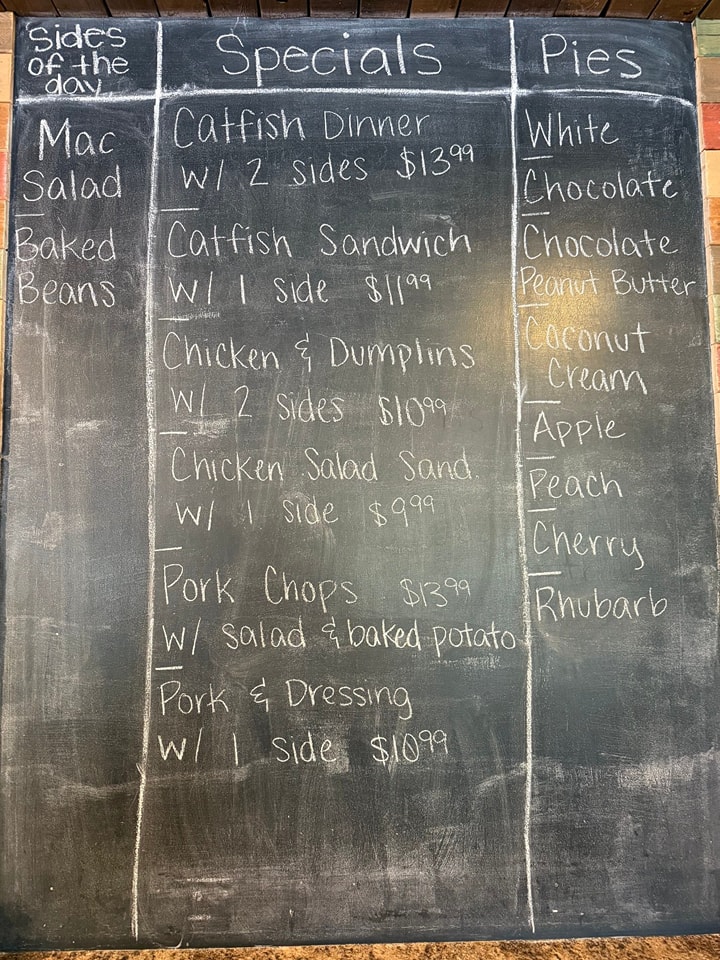 Sides
of the
day
Mac
Salad
Baked
Beans
Specials
Catfish Dinner
W/ 2 sides $13.99
Catfish Sandwich
W/ 1 side $11.99
Chicken & Dumplins
W/ 2 sides $10.99
Chicken Salad Sand.
W/ 1 side $9.99
Pork Chops $13.99
W/ salad & baked potato
Pork & Dressing
W/ 1 side $10.99
Pies
White
Chocolate
Chocolate
Peanut Butter
Coconut
Cream
Apple
Peach
Cherry
Rhubarb